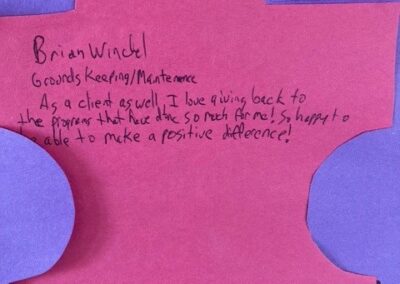 Brian Windel
Grounds Keeping/Mantenence
As a client as well, I love giving back to
the programs that have done so much for me! So happy to
be able to make a positive difference!